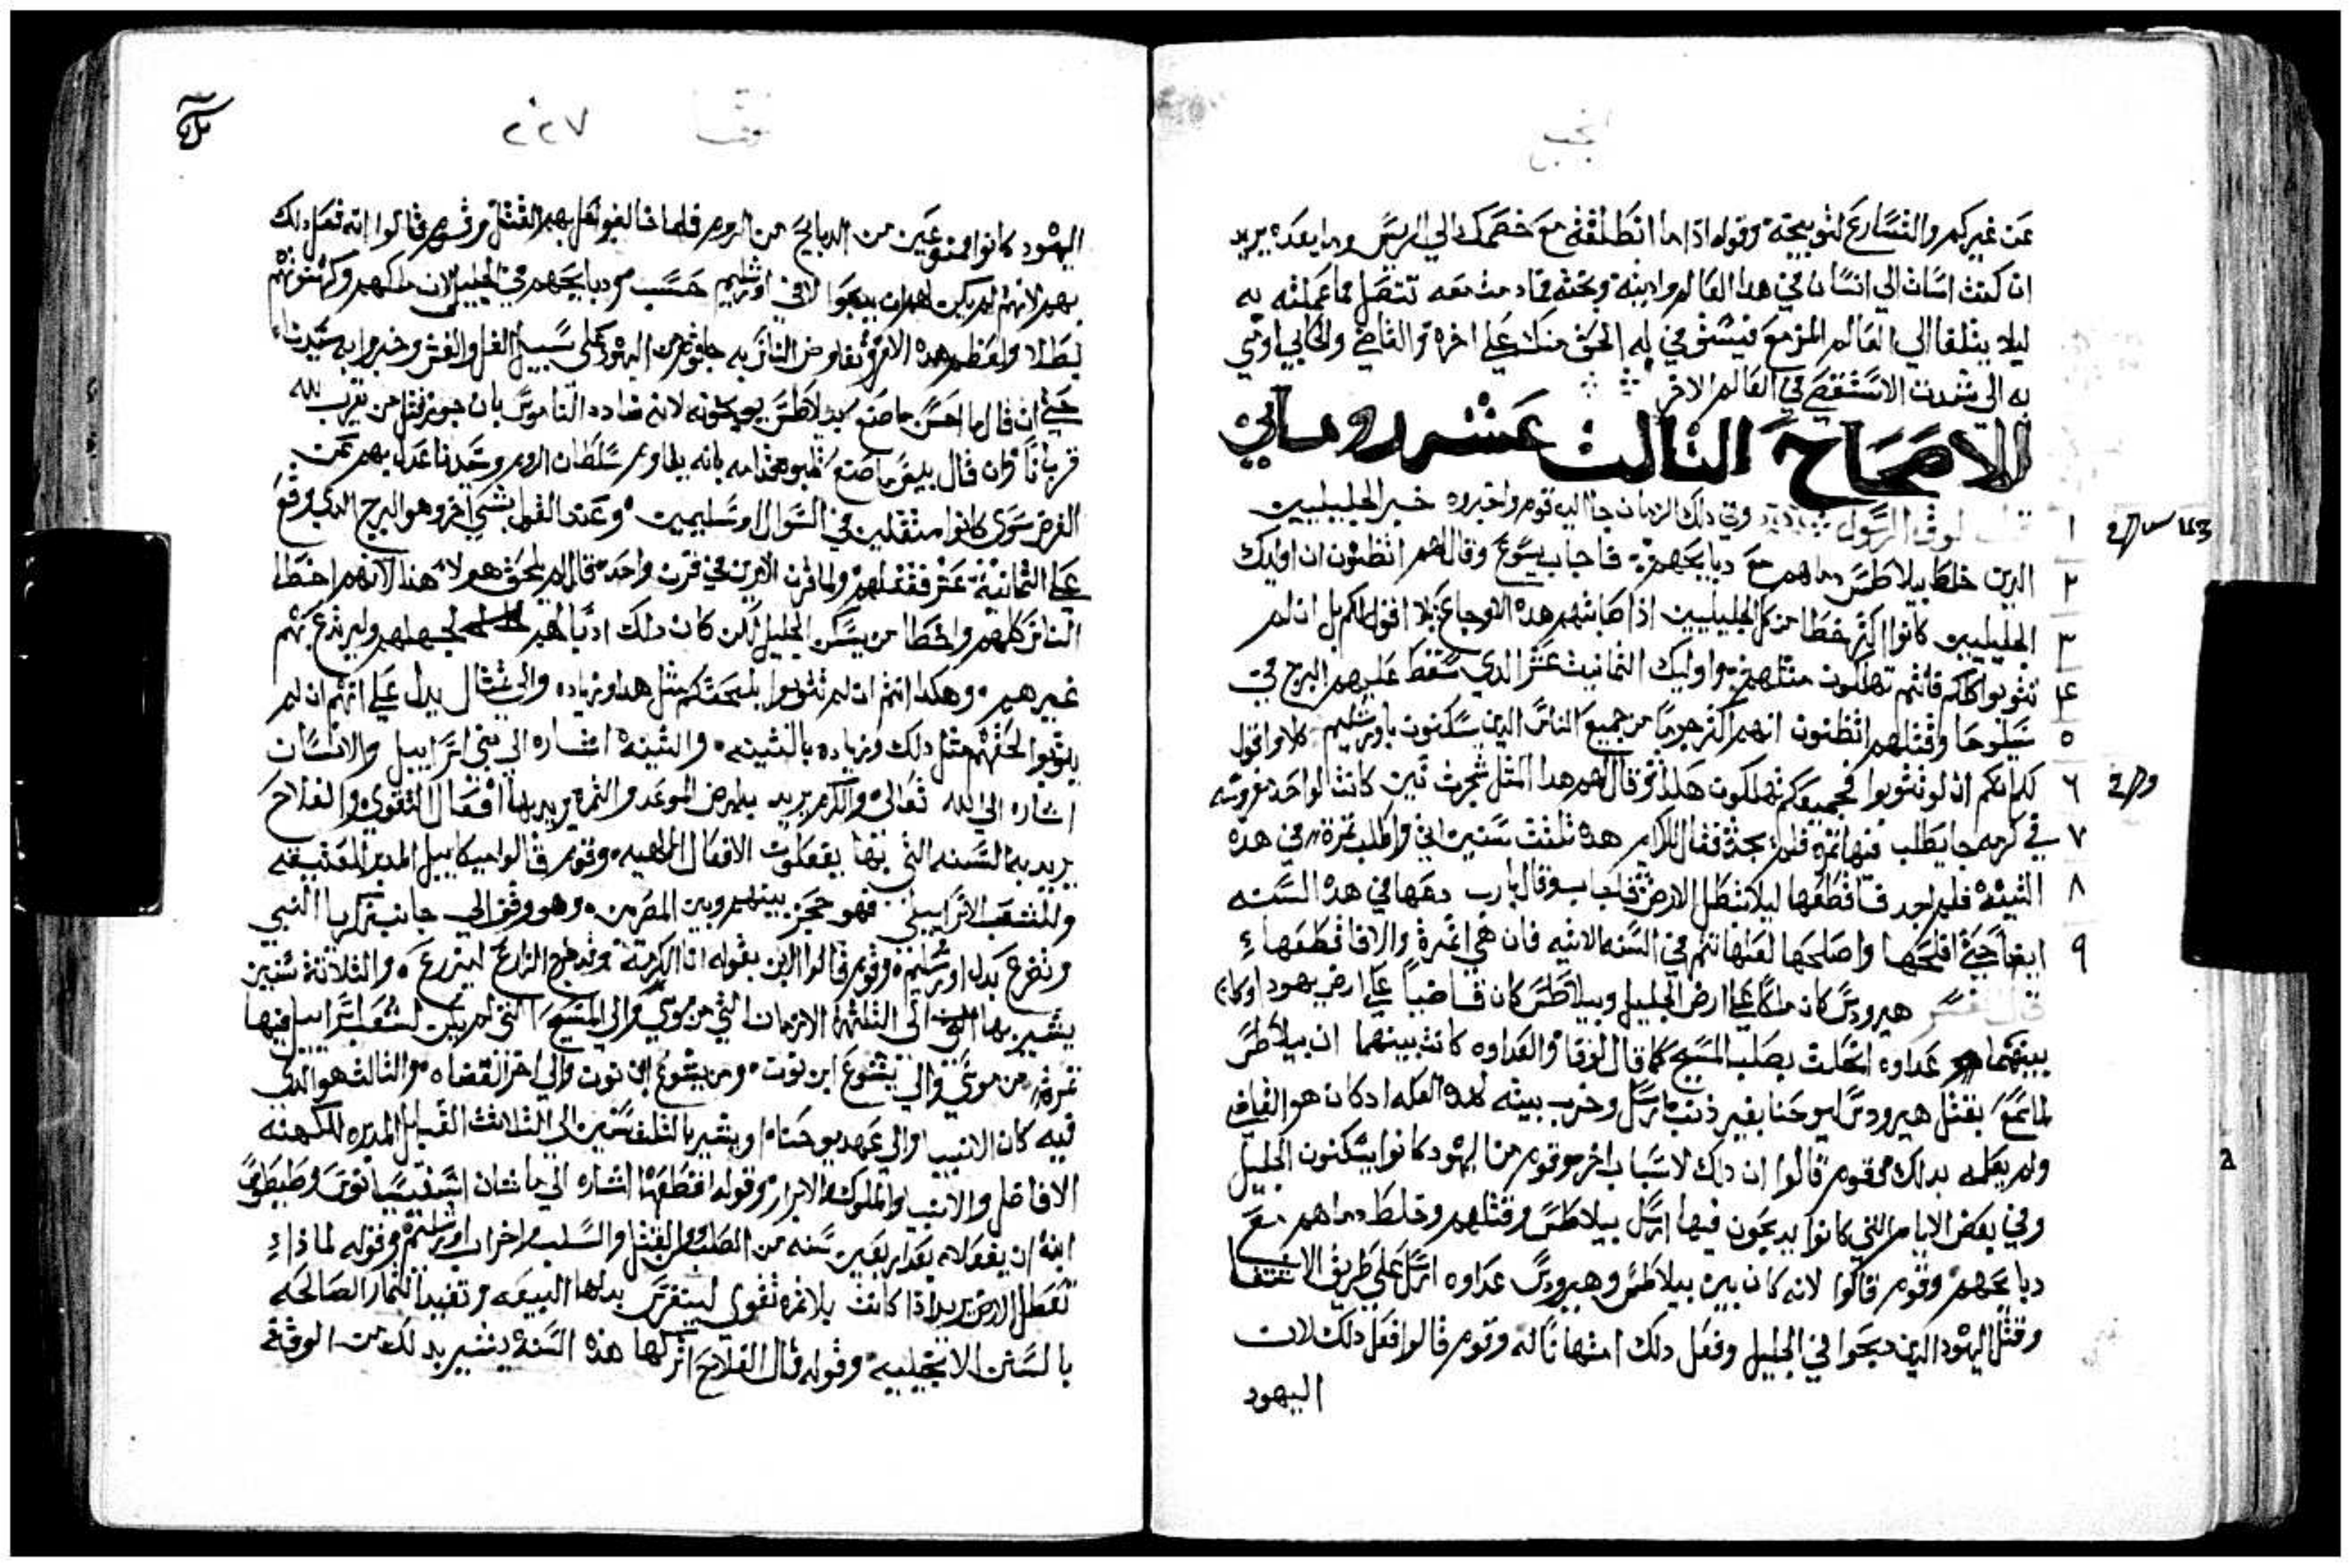 انجيل
عن غيركم والتسارع لتوبيخه وقوله اذا ما انطلقت مع خصمك الي الريس وما بعده يريد
ان كنت اسات الي انسان في هدا العالم وادينه وبحته فمادمت معه تتنصل مما عملته به
ليلا يتلقا الي العالم المزمع فيستوفي له الحق منك علي اخره والقاضي والجابي اومي
به الي شدت الاستقصي في العالم الاخر
الاصحاح الثالث عشر روماني
١ قال لوقا الرسول وفي دلك الزمان جا اليه قوم واخبروه خبر الجليليين
٢ الدين خلط بيلاطس دماهم مع دبايحهم فاجاب يسوع وقال لهم اتظنون ان اوليك
٣ الجليليين كانوا اكثر خطا من كل الجليليين اذ اصابتهم هده الاوجاع كلا اقول لكم بل ان لم
٤ تتوبوا كلكم فانتم تهلكون مثلهم واوليك الثمانيت عشر الدي سقط عليهم البرج في
٥ سيلوحا وقتلهم اتظنون انهم اكثر جرما من جميع الناس الدين يسكنون باورشليم كلا واقول
٦ لكم انكم ان لم تتوبوا فجميعكم تهلكون هكذا وقال لهم هدا المثل شجرت تين كانت لواحد مغروسه
٧ في كرمه جا يطلب فيها ثمره فلم يجد فقال للكرام هده ثلثت سنين اتي واطلب ثمرة في هده
٨ التينة فلم اجد فاقطعها ليلا تبطل الارض فاجاب وقال يارب دعها في هده السنه
٩ ايضا حتي افلحها واصلحها لعلها تثمر في السنه الاتيه فان هي اثمرة والا فاقطعها
قال المفسر هيرودس كان ملكا علي ارض الجليل وبيلاطس كان قاضيا علي ارض يهودا وكان
بينهما عداوه انحلت بصلب المسيح كما قال لوقا والعداوه كانت بينهما ان بيلاطس
لما سمع بقتل هيرودس ليوحنا بغير ذنب ارسل وخرب بيته لهده العله ادكان هو القاضي
ولم يعلمه بدلك وقوم قالوا ان دلك لاسباب اخر وقوم من اليهود كانوا يسكنون الجليل
وفي بعض الايام التي كانوا يدبحون فيها ارسل بيلاطس وقتلهم وخلط دماهم مع
دبايحهم وقوم قالوا لانه كان بين بيلاطس وهيرودس عداوه ارسل علي طريق الاشتفا
وقتل اليهود الدين دبحوا في الجليل وفعل دلك امتهانا له وقوم قالوا فعل دلك لان
اليهود
لوقا ٢٢٧
اليهود كانوا ممنوعين من الدبايح من الروم فلما خالفوا فعل بهم القتل وقوم قالوا انه فعل دلك
بهم لانهم لم يكن لهم ان يدبحوا الا في اورشليم حسب ودبايحهم في الجليل لان ملكهم وكهنوتهم
بطلا ولعظم هده الامر وتفاوض الناس به جا قوم من اليهود علي سبيل الغل والغش وخبروا به سيدنا
حتي ان قال ما احسن ما صنع بيلاطس يوبخونه لانه ضادد الناموس بان جوز قتل من تقرب لله
قربانا وان قال بيس ما صنع ثلبوه خدامه بانه يقاوم سلطان الروم وسيدنا عدل بهم عن
الغرض سوي كانوا منتقلين في السوال او سليمين وعند القول بشي اخر وهو البرج الدي وقع
علي الثمانية عشر فقتلهم ولما قرن الامرين في قرن واحد قال لم يلحق هولا هدا لانهم اخطا
الناس كلهم واخطا من يسكن الجليل لكن كان دلك ادبا لهم لجهلهم وليرتدع بهم
غيرهم وهكدا انتم ان لم تتوبوا يلحقكم مثل هدا وزياده والي مثال يدل علي انهم ان لم
يتوبوا لحقهم مثل دلك وزياده بالتينه والتينه اشاره الي بني اسراييل والانسان
اشاره الي الله تعالي والكرم يريد به ارض الموعد والثمره يريد بها افعال التقوي والفلاح
يريد به السنه التي بها يفعلون الافعال الالهيه وقوم قالوا ميكاييل المدبر للعتيقه
وللشعب الاسراييلي فهو حجز بينهم وبين المصريين وهو وقف الي جانب زكريا النبي
وتضرع بدل اورشليم وقوم قالوا الابن بقوله انا الكرمة وقد خرج الزارع ليزرع والثلاثة سنين
يشير بها الي الثلثة الازمان التي من موسي والي المسيح التي لم يكن لشعب اسراييل فيها
ثمرة من موسي والي يشوع ابن نون ومن يشوع ابن نون والي اخر القضاه والثالث هو الدي
فيه كان الانبيا والي عهد يوحنا او يشير بالثلث سنين الي الثلاثت القبايل المدبره للكهنه
الافاضل والانبيا والملوك الابرار وقوله اقطعها اشاره الي ما شان اسفسيانوس وطيطوس
ابنه ان يفعلاه بعد اربعين سنه من الصلب من القتل والسلب واخراب اورشليم وقوله لماذا
تعطل الارض يريد اذا كانت بلا ثمره تقوي لينغرس بدلها البيعه وتفيد الثمار الصالحه
بالسنن الانجيليه وقوله قال الفلاح اتركها هذه السنة يشير بدلك من الوقفة